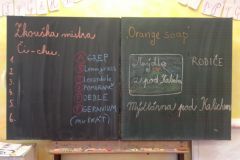 Zkouška mistra
Či-chu.
1
2
3
4
5
6.
A GREP
B Lemongrass
C Levandule
D POMERANČ
E JEDLE
F GERANIUM
(MUŠKÁT)
Orange soap
Mýdlo
z pod Kalicha
RODIČE
Mýdlárna pod Kalichem